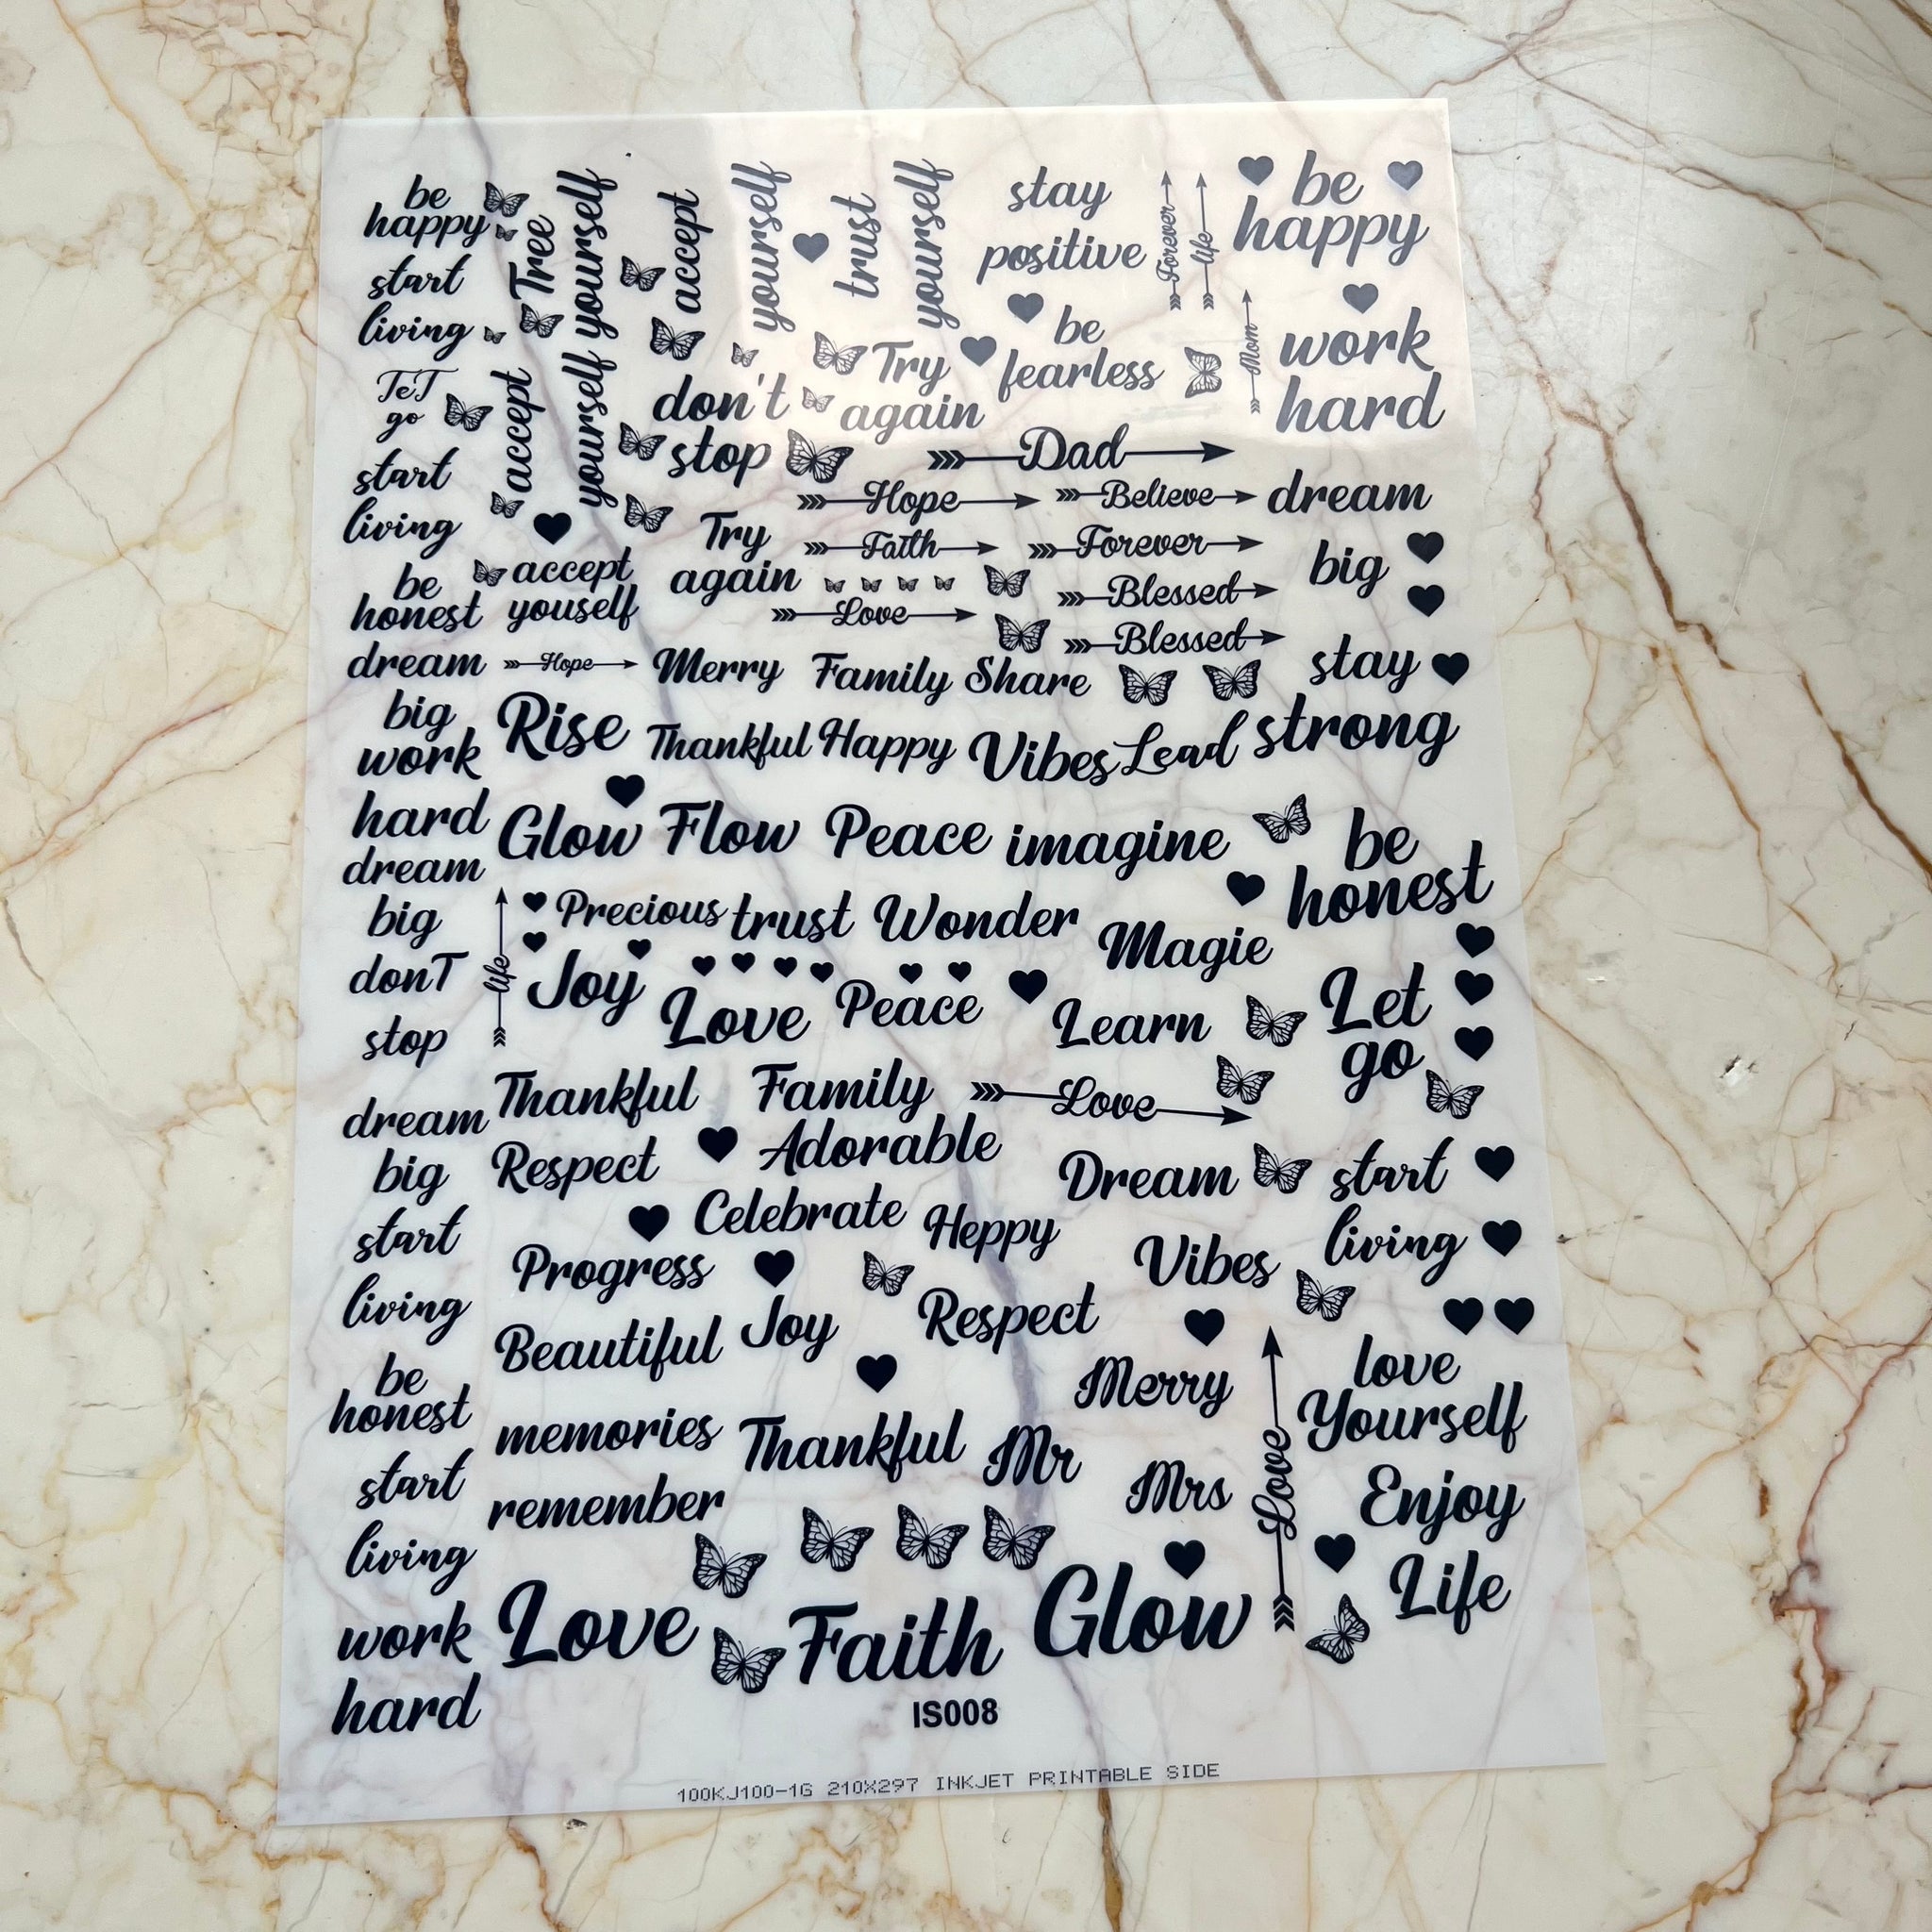 be
happy
start
living
TeT
go
start
living
be
honest
dream
big
work
hard
dream
big
donT
stop
dream
big
start
living
be
honest
start
living
work
hard
Tree
yourself
accept
yourself
accept
yourself
trust
yourself
stay
positive
Forever
life
be
happy
be
fearless
Mom
work
hard
Try
again
don't
stop
Dad
Hope
Believe
dream
big
Try
again
Faith
Forever
accept
youself
Blessed
Love
Blessed
Hope
Merry Family Share
stay
strong
Rise Thankful Happy Vibes Lead
Glow Flow Peace imagine
be
honest
Precious trust Wonder
Magie
life
Joy Love Peace Learn
Let
go
Thankful Family Love
Respect Adorable
Dream
start
living
Celebrate Heppy
Progress
Vibes
Beautiful Joy Respect
Merry
love
Yourself
memories Thankful Mr
Mrs
Love
Enjoy
Life
remember
Love Faith Glow
IS008
100KJ100-1G 210X297 INKJET PRINTABLE SIDE